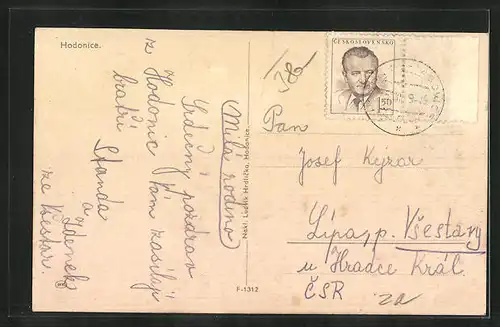 Hodonice.
Milá rodino
Srdečný pozdrav
z Hodonic Vám zasílají
bratři
Standa
a
Zdenek
ze Všestar.
Nákl. Luděk Hrdlička, Hodonice.
F-1312
ČESKOSLOVENSKO
1.50
Pan
Josef Kyzar
Lípa, p. Všestary
u Hradce Král.
ČSR